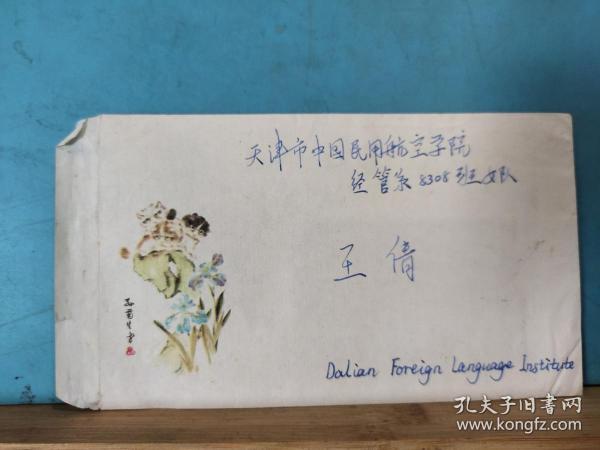 天津市中国民用航空学院
经管系8308班女队
王倩
Dalian Foreign Language Institute
孙菊生画
孔夫子旧书网
www.kongfz.com